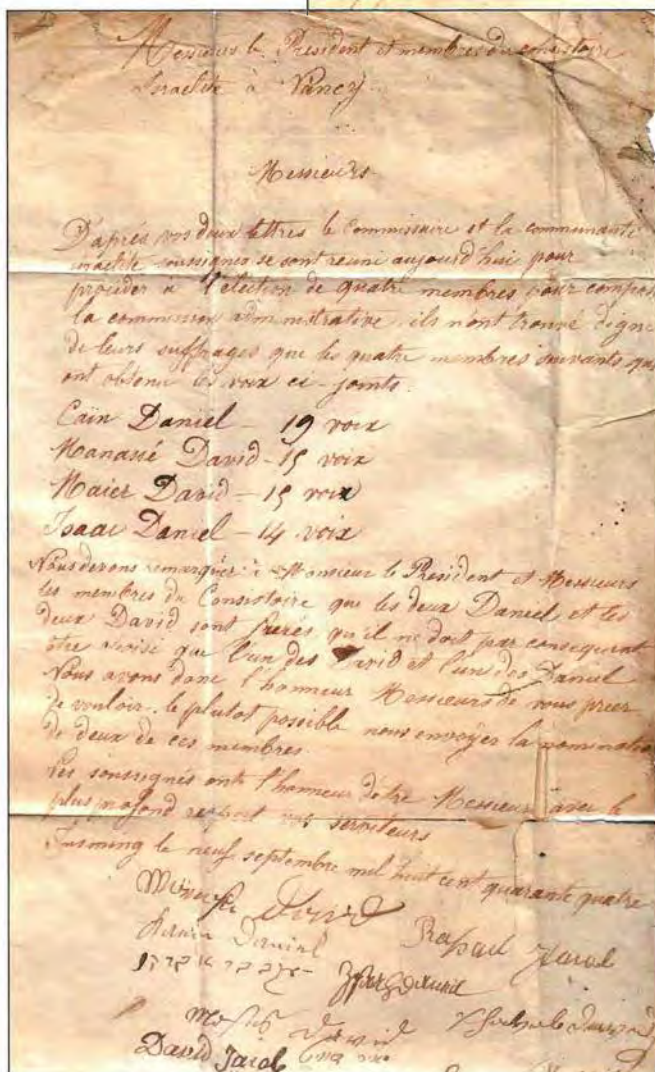 Messieurs le Président et membres du consistoire
Israelite à Nancy
Messieurs
D'après vos deux lettres le Commissaire et la communauté
israelite soussignés se sont reuni aujourd'hui pour
procéder à l'élection de quatre membres pour compos
la commission administrative. ils n'ont trouvé digne
de leurs suffrages que les quatre membres suivants qui
ont obtenu les voix ci-joints.
Caïn Daniel - 19 voix
Manassé David - 15 voix
Maier David - 15 voix
Isaac Daniel - 14 voix
Nous devons remarquer à Monsieur le Président et Messieurs
les membres du Consistoire que les deux Daniel et les
deux David sont frères, qu'il ne doit par consequent
être que l'un des David et l'un des Daniel
Nous avons donc l'honneur Messieurs de vous prier
de vouloir le plutot possible nous envoyer la nominatio
de deux de ces membres.
Les soussignés ont l'honneur d'être Messieurs avec le
plus profond respect vos serviteurs
Insming le neuf septembre mil huit cent quarante quatre
David
Raphael Jacob
Daniel
David
David Jacob